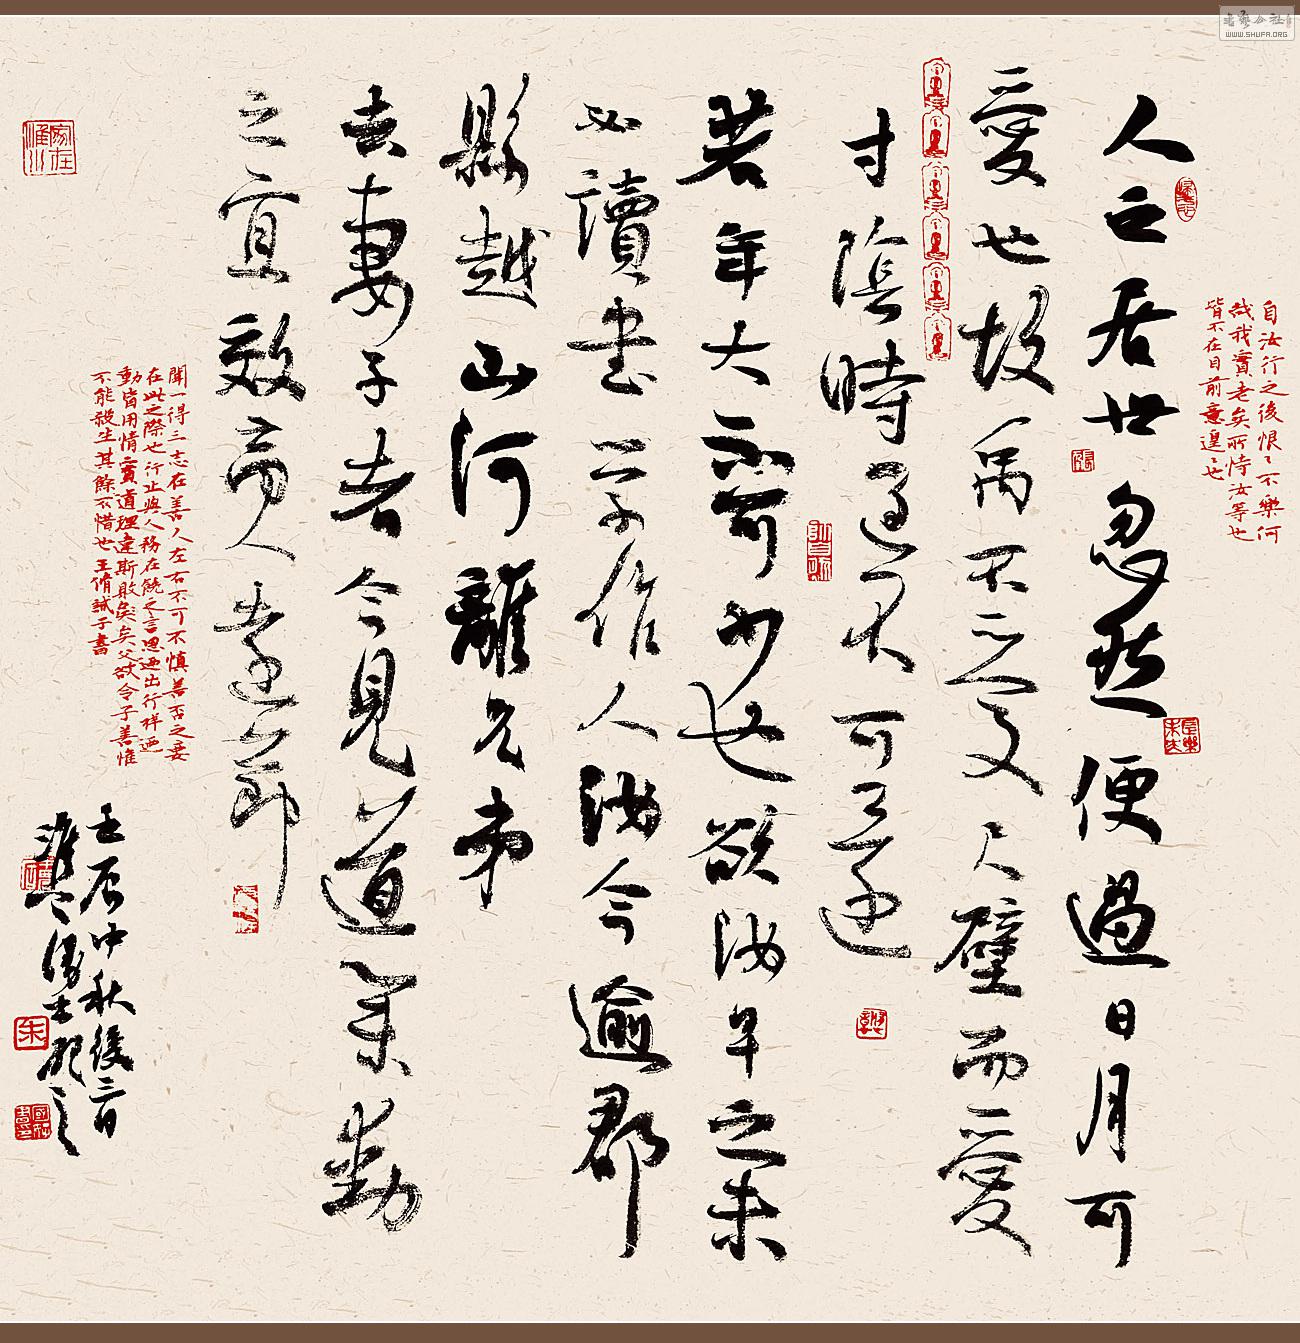 自汝行之後恨恨不樂何
哉我實老矣所恃汝等也
皆不在目前意遑遑也
人之居世忽然便過日月可
愛也故禹不愛尺璧而愛
寸陰時過不可還
若年大不可少也欲汝早之未
必讀書學作人汝今逾郡
縣越山河離兄弟
去妻子者今見道業動
之宜效高人遠節
聞一得三志在善人左右不可不慎善否之要
在此之際也行止與人務在饒之言思迺出行祥迺
動皆用情實道理違斯敗矣父欲令子善惟
不能殺生其餘不惜也王脩誡子書
壬辰中秋後三日
WWW.SHUFA.ORG